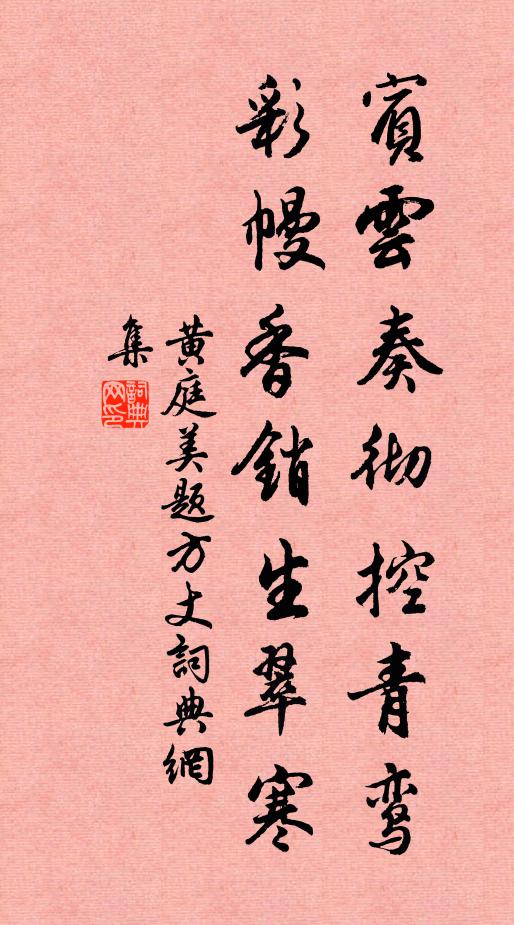 賓雲奏彻控青鸾
彩幔香銷生翠寒
黄庭美题方丈詞典網
集
詞典
网印